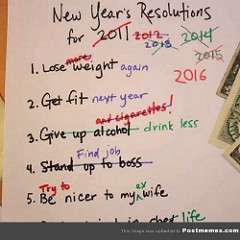 New Year's Resolutions
for 2011 2012 2013 2014 2015 2016
more
1. Lose weight again
2. Get fit next year
and cigarettes!
3. Give up alcohol drink less
Find job
4. Stand up to boss
Try to ex
5. Be nicer to my wife
life
This image was uploaded @ Postmemes.com